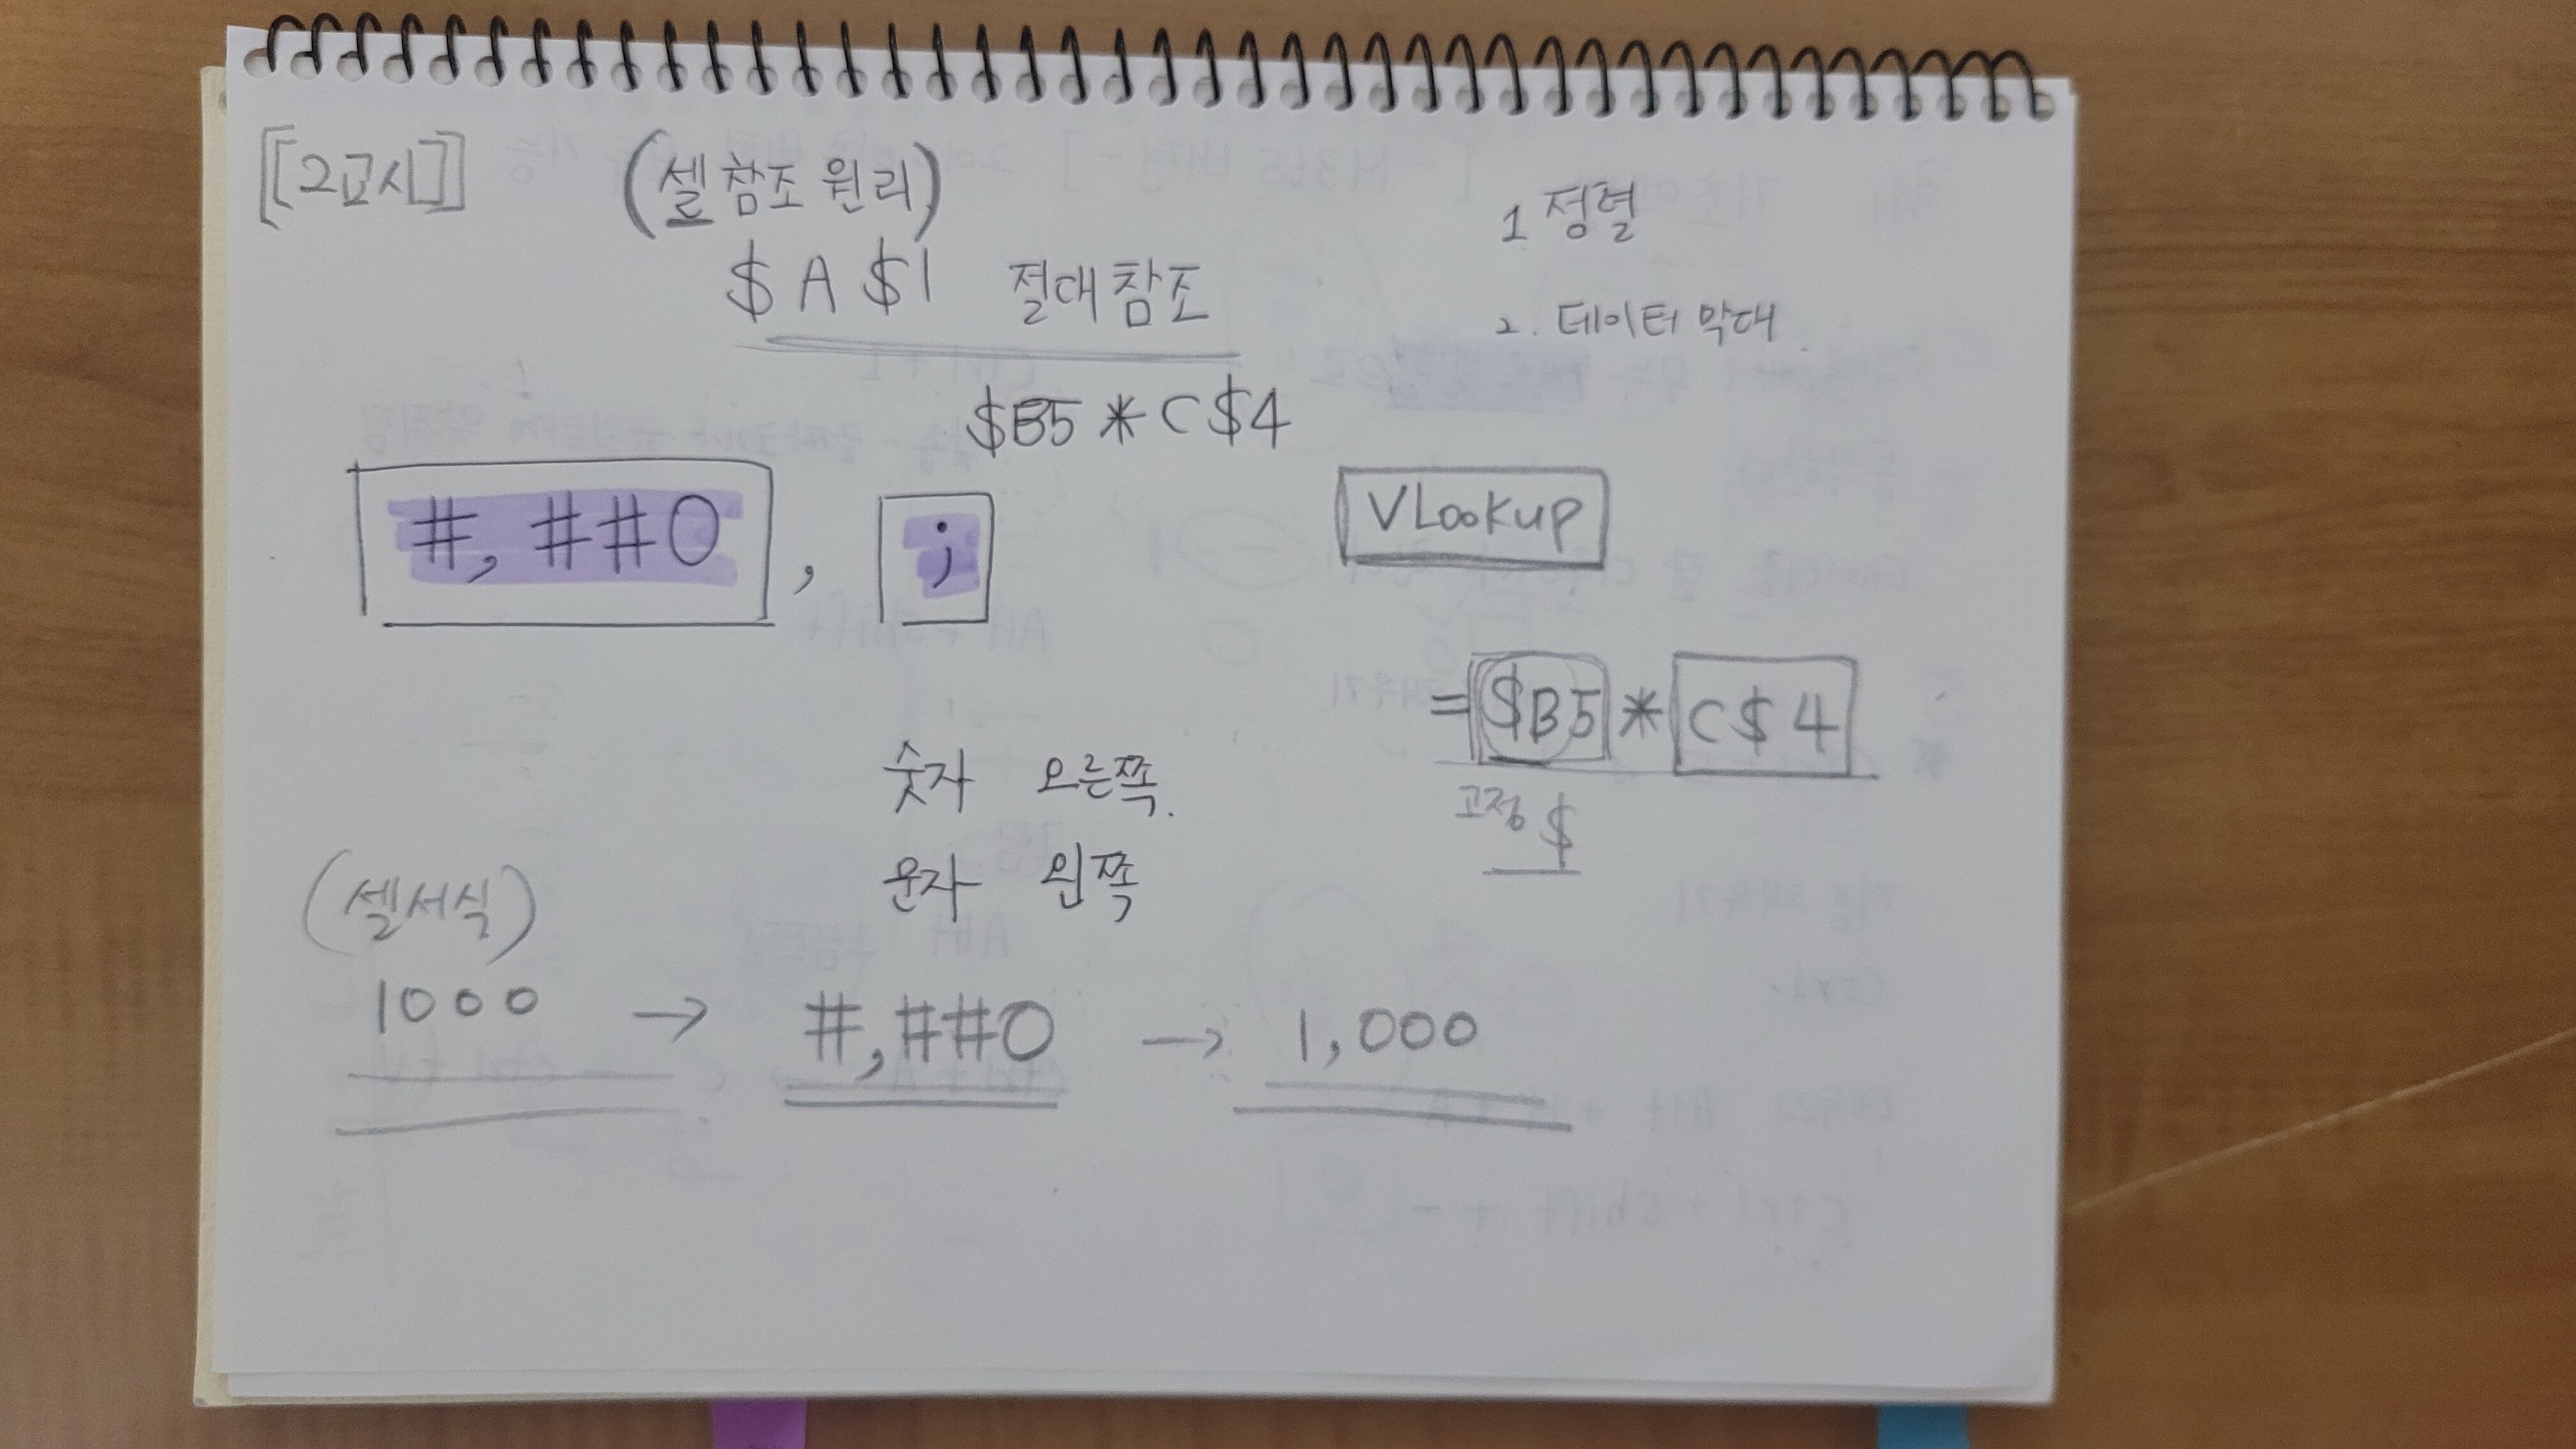 [[2교시]]
(셀 참조 원리)
$A$1 절대참조
1 정렬
2. 데이터 막대
$B5 * C$4
#,##0 , ;
VLookup
=$B5 * C$4
고정 $
숫자 오른쪽.
문자 왼쪽
(셀서식)
1000 → #,##0 → 1,000